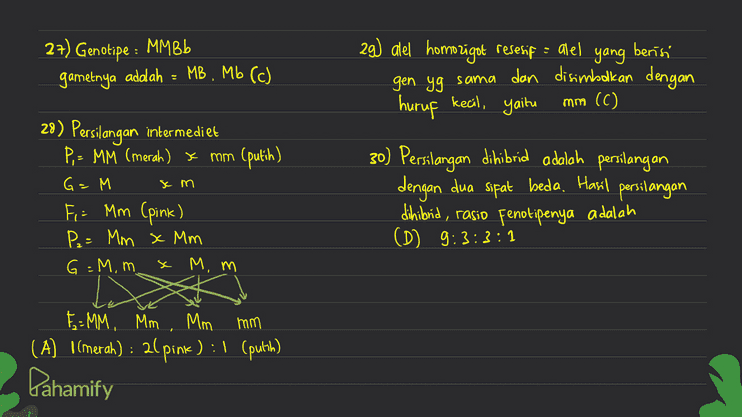 27) Genotipe : MMBb
gametnya adalah = MB, Mb (C)
28) Persilangan intermediet
P₁= MM (merah) x mm (putih)
G = M x m
F₁= Mm (pink)
P₂= Mm x Mm
G = M, m x M, m
F₂= MM, Mm, Mm mm
(A) 1(merah) : 2(pink) : 1 (putih)
29) alel homozigot resesif = alel yang berisi
gen yg sama dan disimbolkan dengan
huruf kecil, yaitu mm (C)
30) Persilangan dihibrid adalah persilangan
dengan dua sifat beda. Hasil persilangan
dihibrid, rasio fenotipenya adalah
(D) 9:3:3:1
Pahamify